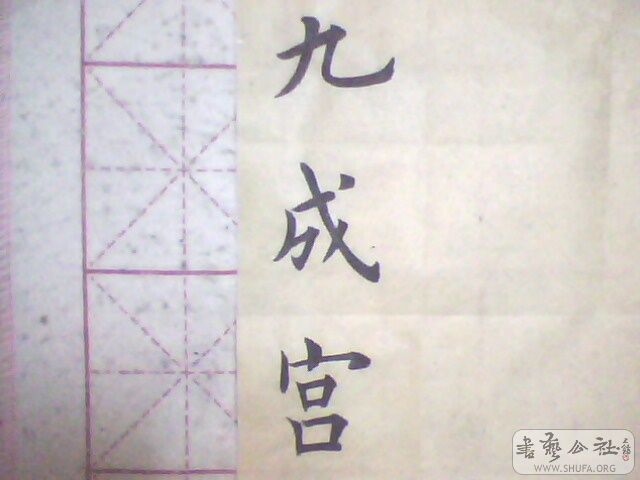 九成宫
書藝公社
WWW.SHUFA.ORG